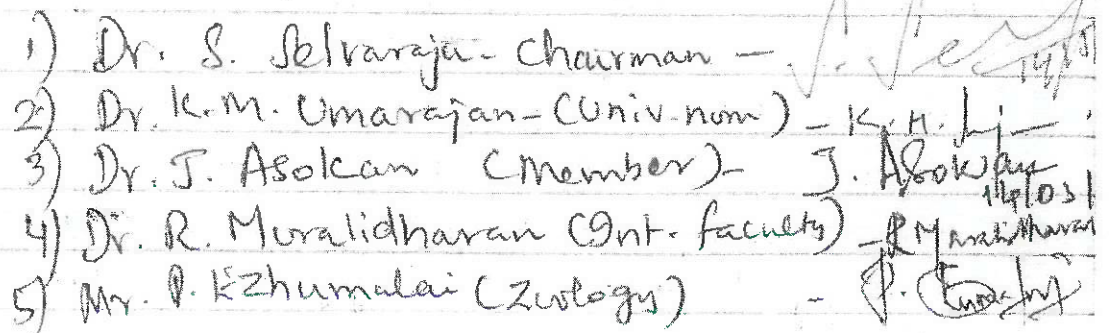 1) Dr. S. Selvaraju - Chairman -
2) Dr. K.M. Umarajan - (Univ. nom) - K.M.
3) Dr. J. Asokan (Member) - J. Asokan
14/03/
4) Dr. R. Muralidharan (Int. faculty) - R Muralidharan
5) Mr. P. Ezhumalai (Zoology) - P.